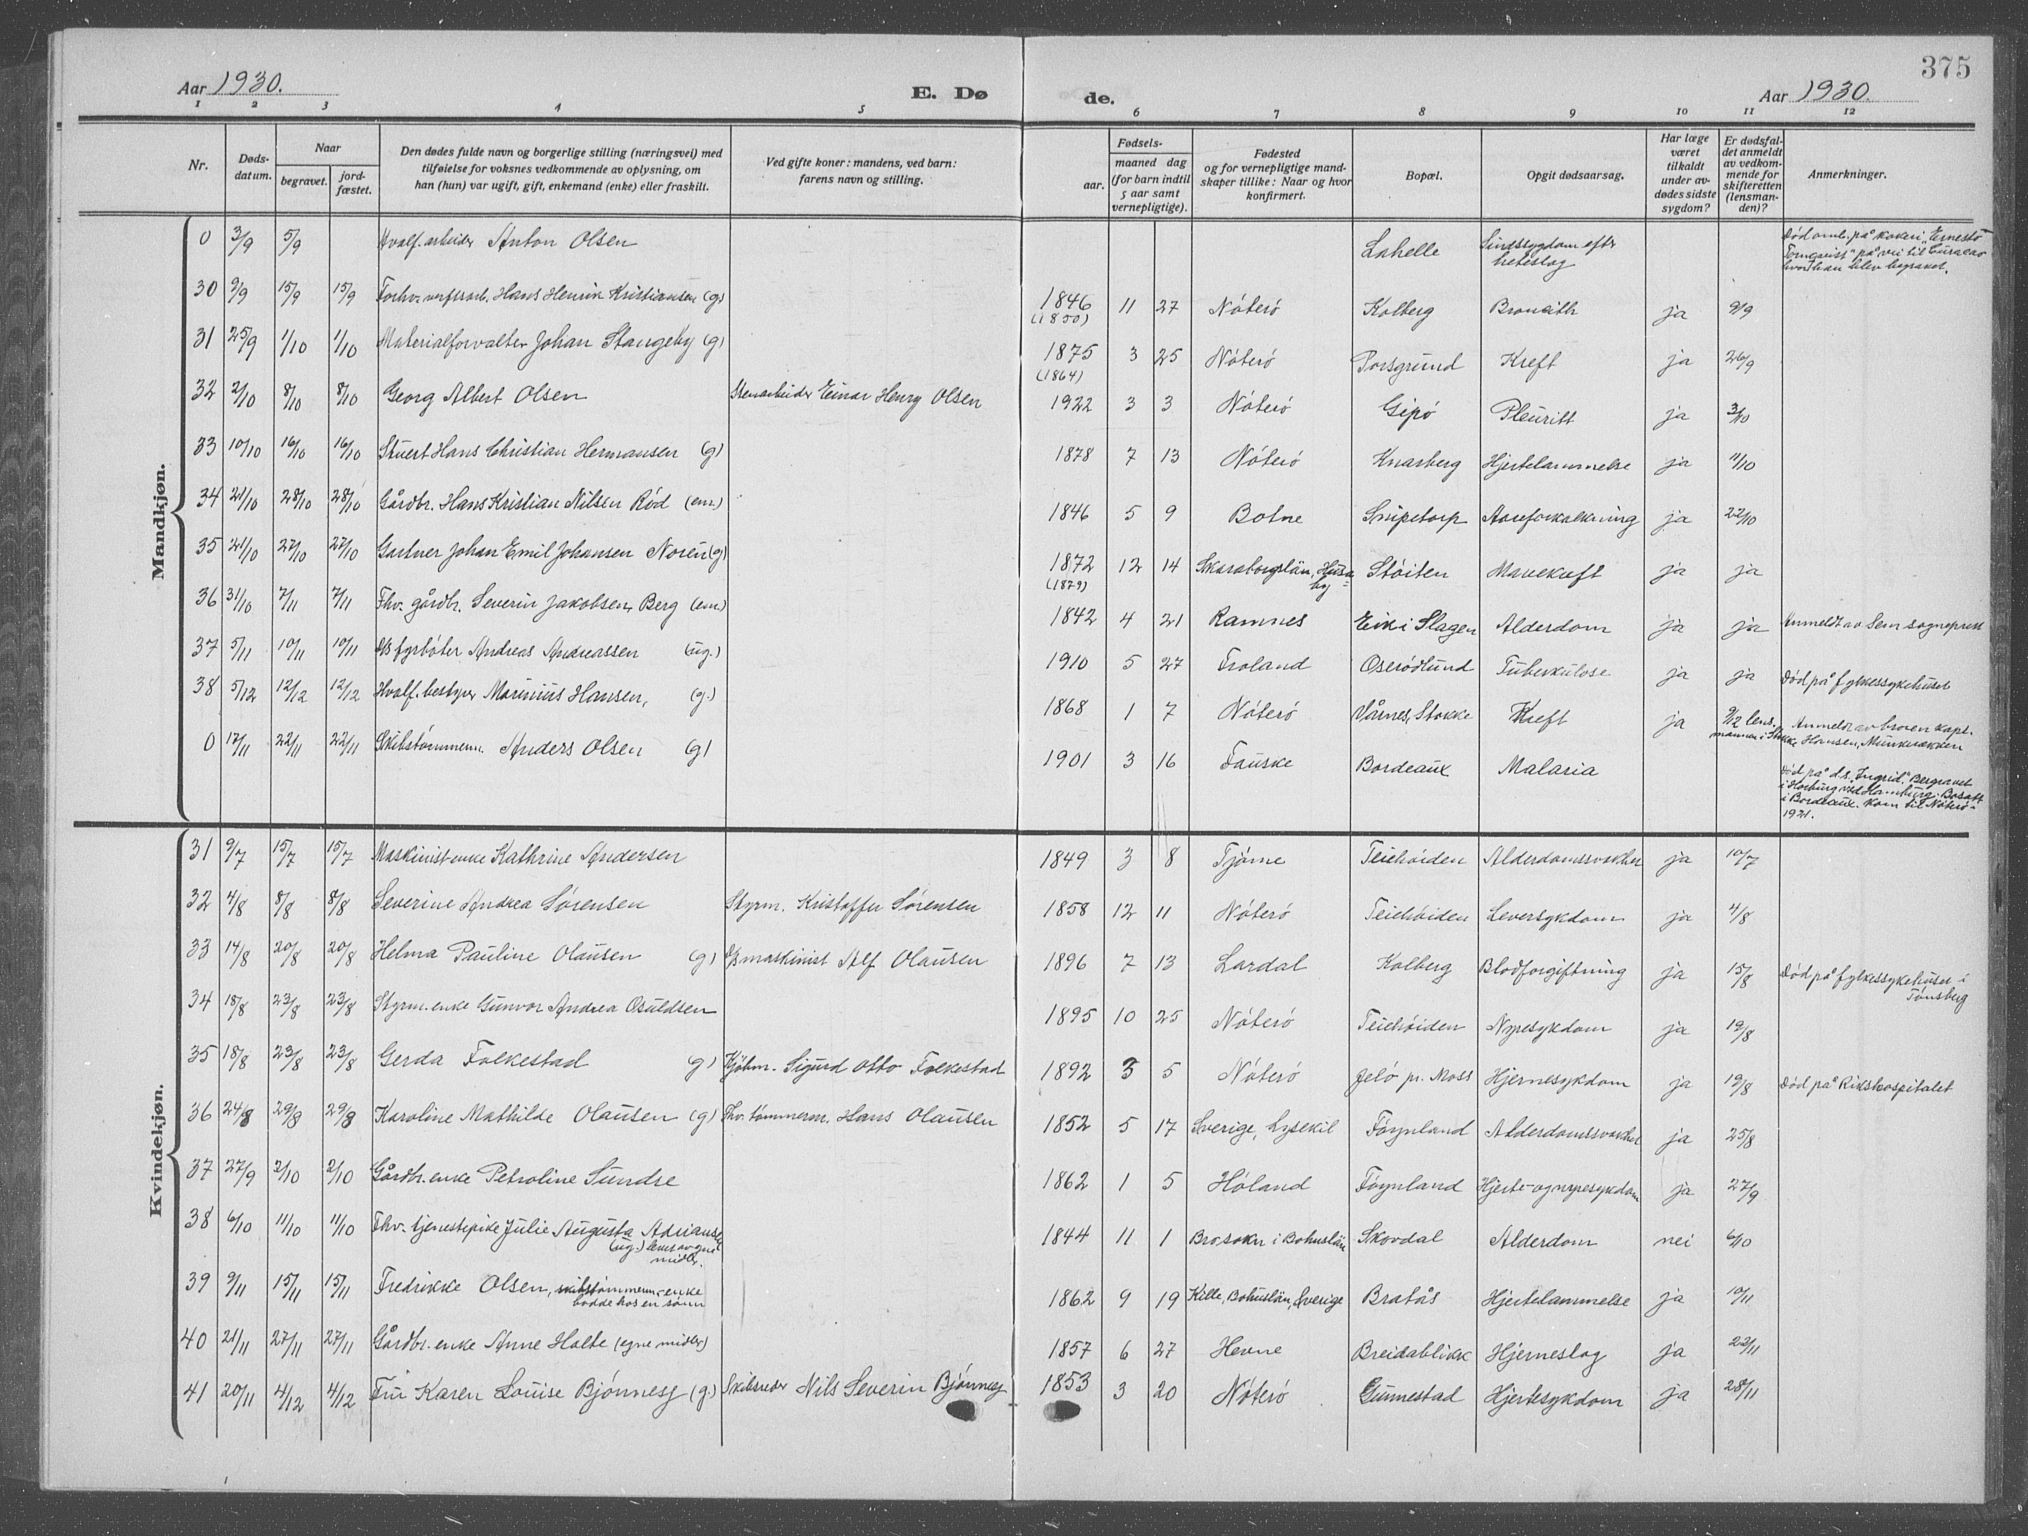 375
Aar 1930.
E. Dø
de.
Aar 1930.
1 2 3 4 5 6 7 8 9 10 11 12
Nr.
Døds-
datum.
Naar
begravet.
jord-
fæstet.
Den dødes fulde navn og borgerlige stilling (næringsvei) med
tilføielse for voksnes vedkommende av oplysning, om
han (hun) var ugift, gift, enkemand (enke) eller fraskilt.
Ved gifte koner: mandens, ved barn:
farens navn og stilling.
Fødsels-
aar.
maaned dag
(for barn indtil
5 aar samt
vernepligtige).
Fødested
og for vernepligtige mand-
skaper tillike: Naar og hvor
konfirmert.
Bopæl.
Opgit dødsaarsag.
Har læge
været
tilkaldt
under av-
dødes sidste
sygdom?
Er dødsfal-
det anmeldt
av vedkom-
mende for
skifteretten
(lensman-
den)?
Anmerkninger.
Mandkjøn.
0 3/9 5/9 Hvalf. arbeider Anton Olsen Lahelle Sindssygdom efter heteslag Død omb. på kokeri "Ernesto Tornquist" på vei til Curacao hvor han blev begravet.
30 9/9 15/9 15/9 Forhv. verftsarb. Hans Henrik Kristiansen (g) 1846 (1850) 11 27 Nøterø Kolberg Bronkith ja 9/9
31 25/9 1/10 1/10 Materialforvalter Johan Stangeby (g) 1875 (1864) 3 25 Nøterø Porsgrund Kreft ja 26/9
32 2/10 8/10 8/10 Georg Albert Olsen Stenarbeider Einar Henry Olsen 1922 3 3 Nøterø Gipø Pleuritt ja 3/10
33 10/10 16/10 16/10 Stuert Hans Christian Hermansen (g) 1878 7 13 Nøterø Knarberg Hjertelammelse ja 11/10
34 21/10 28/10 28/10 Gårdbr. Hans Kristian Nilsen Rød (em.) 1846 5 9 Botne Snipetorp Aareforkalkning ja 22/10
35 21/10 27/10 27/10 Gartner Johan Emil Johansen Noren (g) 1872 (1879) 12 14 Skaraborgslän, Husaby Støiten Mavekreft ja ja
36 31/10 7/11 7/11 Fhv. gårdbr. Severin Jakobsen Berg (em) 1842 4 21 Ramnes Eik i Slagen Alderdom ja ja Anmeldt av Sem sogneprest
37 5/11 10/11 10/11 D/S fyrbøter Andreas Andreassen (ug.) 1910 5 27 Froland Oserødlund Tuberkulose ja ja Død på fylkessykehuset
38 5/12 12/12 12/12 Hvalf. bestyrer Marinius Hansen, (g.) 1868 1 7 Nøterø Vårnes, Stokke Kreft ja 9/12 lensmannen i Stokke Anmeldt av broren kapt. Hansen, Munkerekken
0 17/11 22/11 22/11 Skibstømmerm. Anders Olsen (g) 1901 3 16 Fauske Bordeaux Malaria Død på d.s. "Ingrid". Begravet i Harburg ved Hamburg. Bosatt i Bordeaux. Kom til Nøterø 1921.
Kvindekjøn.
31 9/7 15/7 15/7 Maskinist-enke Kathrine Andersen 1849 3 8 Tjøme Teiehøiden Alderdomssvakhet ja 10/7
32 4/8 8/8 8/8 Severine Andrea Sørensen Styrm. Kristoffer Sørensen 1858 12 11 Nøterø Teiehøiden Leversykdom ja 4/8
33 14/8 20/8 20/8 Helma Pauline Olausen (g) D/S maskinist Alf Olausen 1896 7 13 Lardal Kolberg Blodforgiftning ja 15/8 Død på fylkessykehuset i Tønsberg
34 18/8 23/8 23/8 Styrm. enke Gunvor Andrea Osuldsen 1895 10 25 Nøterø Teiehøiden Nyresykdom ja 19/8
35 18/8 23/8 23/8 Gerda Folkestad (g) Kjøbm. Sigurd Otto Folkestad 1892 3 5 Nøterø Jelø pr. Moss Hjernesykdom ja 19/8 Død på Rikshospitalet
36 24/8 29/8 29/8 Karoline Mathilde Olausen (g) Fhv. tømmerm. Hans Olausen 1852 5 17 Sverige, Lysekil Føynland Alderdomssvakhet ja 25/8
37 27/9 2/10 2/10 Gårdbr. enke Petroline Sundre 1862 1 5 Høland Føynland Hjerte- og nyresykdom ja 27/9
38 6/10 11/10 11/10 Fhv. tjenestepike Julie Augusta Adriansen (ug.) lever av egne midler. 1844 11 1 Bro sokn i Bohuslän Skovdal Alderdom nei 6/10
39 9/11 15/11 15/11 Fredrikke Olsen, skibstømmerm.-enke bodde hos en sønn 1862 9 19 Kille, Bohuslän, Sverige Bratås Hjertelammelse ja 10/11
40 21/11 27/11 27/11 Gårdbr. enke Anne Holte (egne midler) 1857 6 27 Hevne Breidablikk Hjerneslag ja 22/11
41 20/11 4/12 4/12 Fru Karen Louise Bjønnesj (g.) Skibsreder Nils Severin Bjønnesj 1853 3 20 Nøterø Gunnestad Hjertesykdom ja 28/11